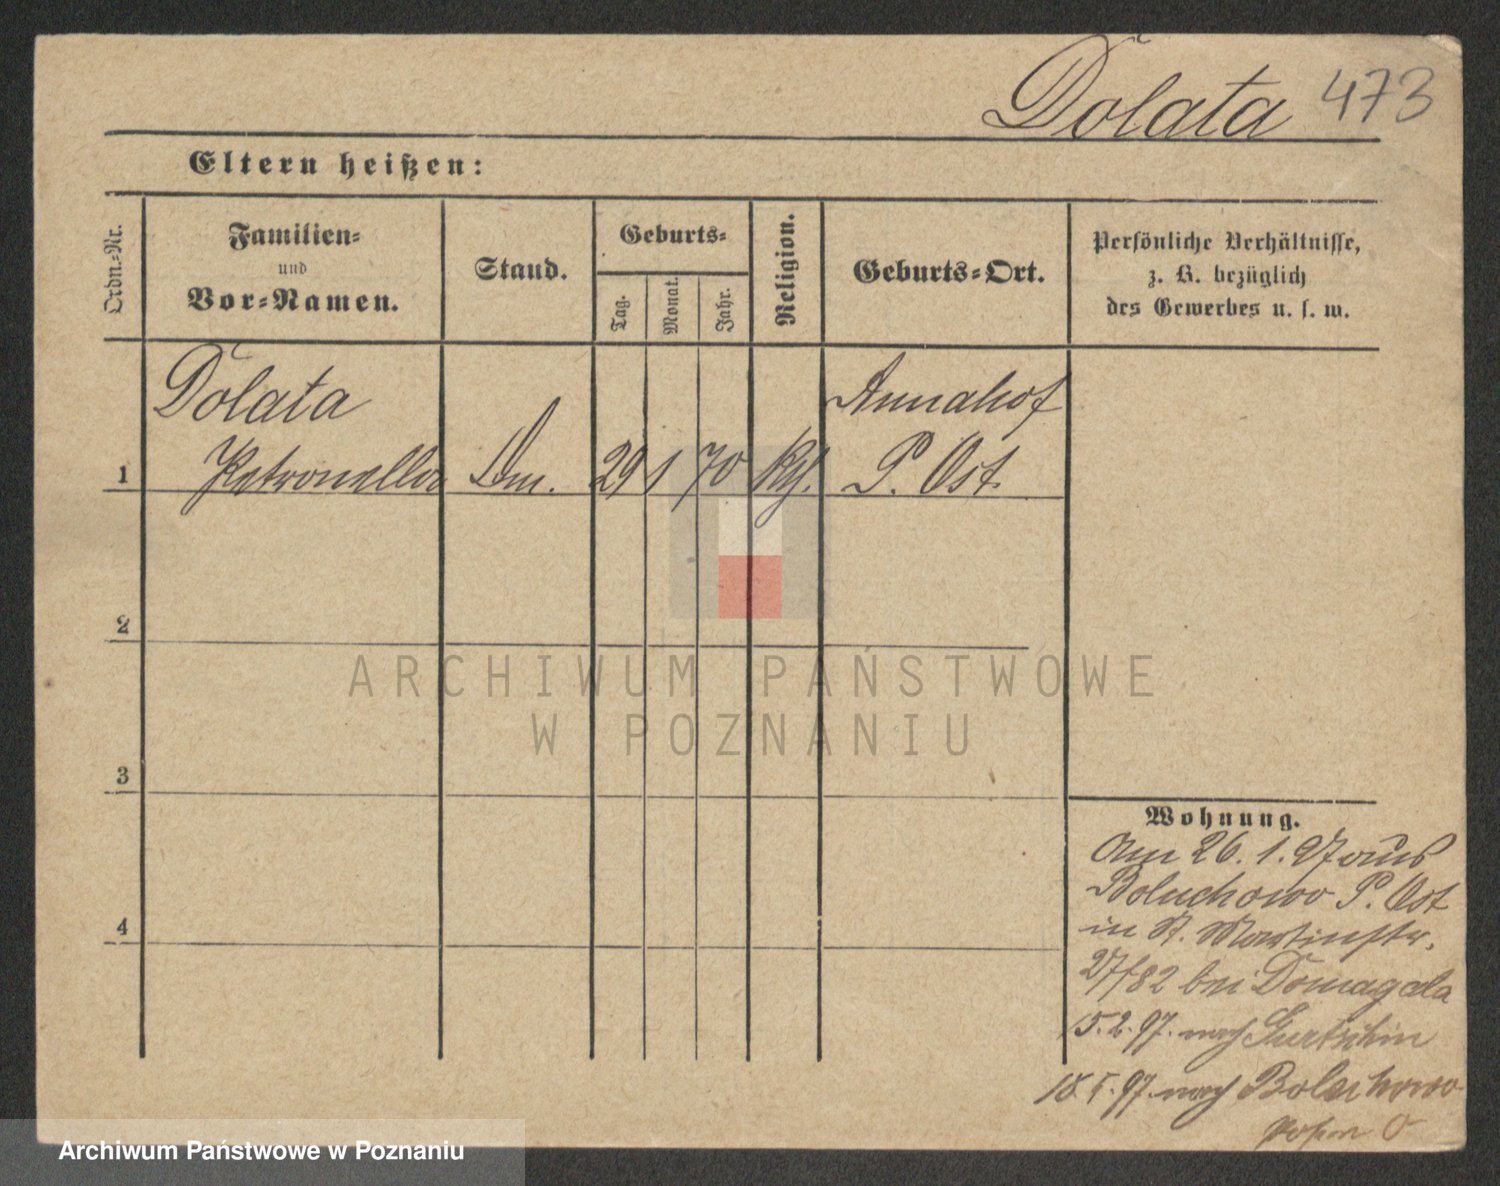 Dolata 473
Eltern heißen:
Ordn.-Nr.
Familien-
und
Vor-Namen.
Stand.
Geburts-
Tag.
Monat.
Jahr.
Religion.
Geburts-Ort.
Persönliche Verhältnisse,
z. B. bezüglich
des Gewerbes u. s. w.
Dolata
Annahof
1 Petronella 29 1 70 kth. P. Ost
2
3
4
Wohnung.
Am 26. 1. 97 aus
Boluchowo P. Ost
in St. Martinstr.
27/82 bei Domagala
15.2.97. nach Gurtschin
nach Boluchowo
Posen O
ARCHIWUM PAŃSTWOWE
W POZNANIU
Archiwum Państwowe w Poznaniu